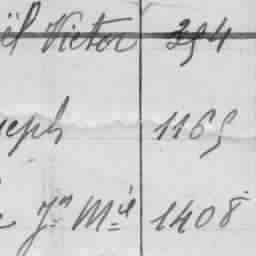 ël Victor 394
seph 1165
Jn Mie 1408